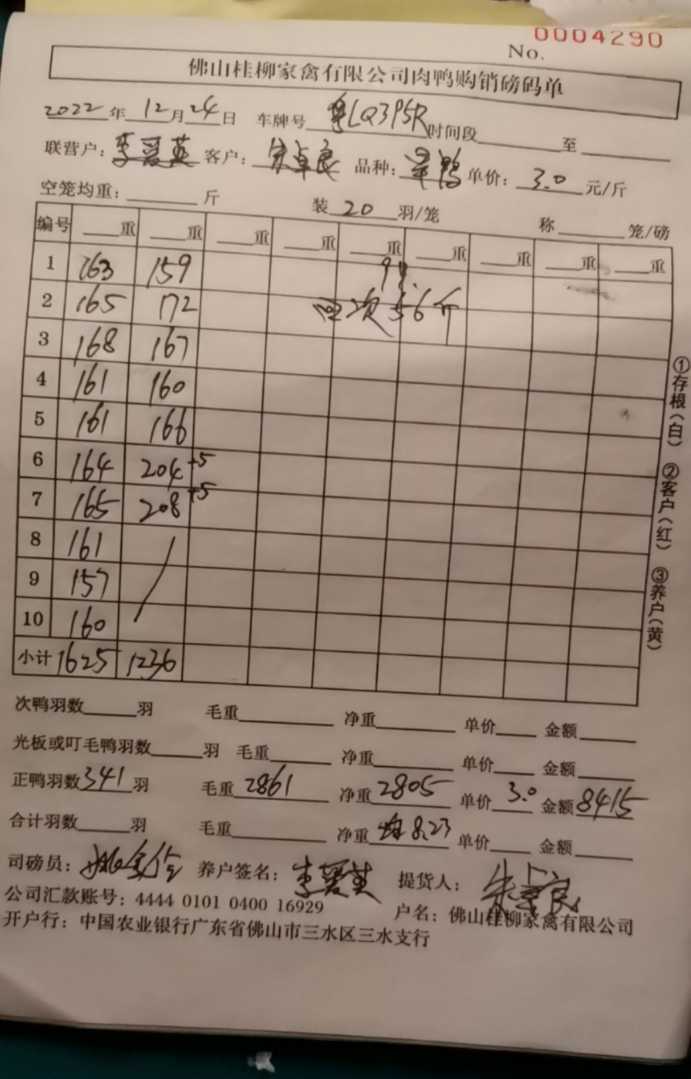 No. 0004290
佛山桂柳家禽有限公司肉鸭购销磅码单
2022年12月24日 车牌号 粤LQ3P5R 时间段____至____
联营户：李爱英 客户：朱卓良 品种：旱鸭 单价：3.0元/斤
空笼均重：____斤 装20羽/笼 称____笼/磅
编号 ____重 ____重 ____重 ____重 ____重 ____重 ____重 ____重 ____重
1 163 159
2 165 172 次56斤
3 168 167
4 161 160
5 161 166
6 164 204+5
7 165 208+5
8 161
9 157
10 160
小计 1625 1236
次鸭羽数____羽 毛重____ 净重____ 单价____ 金额____
光板或叮毛鸭羽数____羽 毛重____ 净重____ 单价____ 金额____
正鸭羽数341羽 毛重2861 净重2805 单价3.0 金额8415
合计羽数____羽 毛重____ 净重均8.23 单价____ 金额____
司磅员： 养户签名：李爱英 提货人：朱卓良
公司汇款账号：4444 0101 0400 16929 户名：佛山桂柳家禽有限公司
开户行：中国农业银行广东省佛山市三水区三水支行
①存根（白） ②客户（红） ③养户（黄）